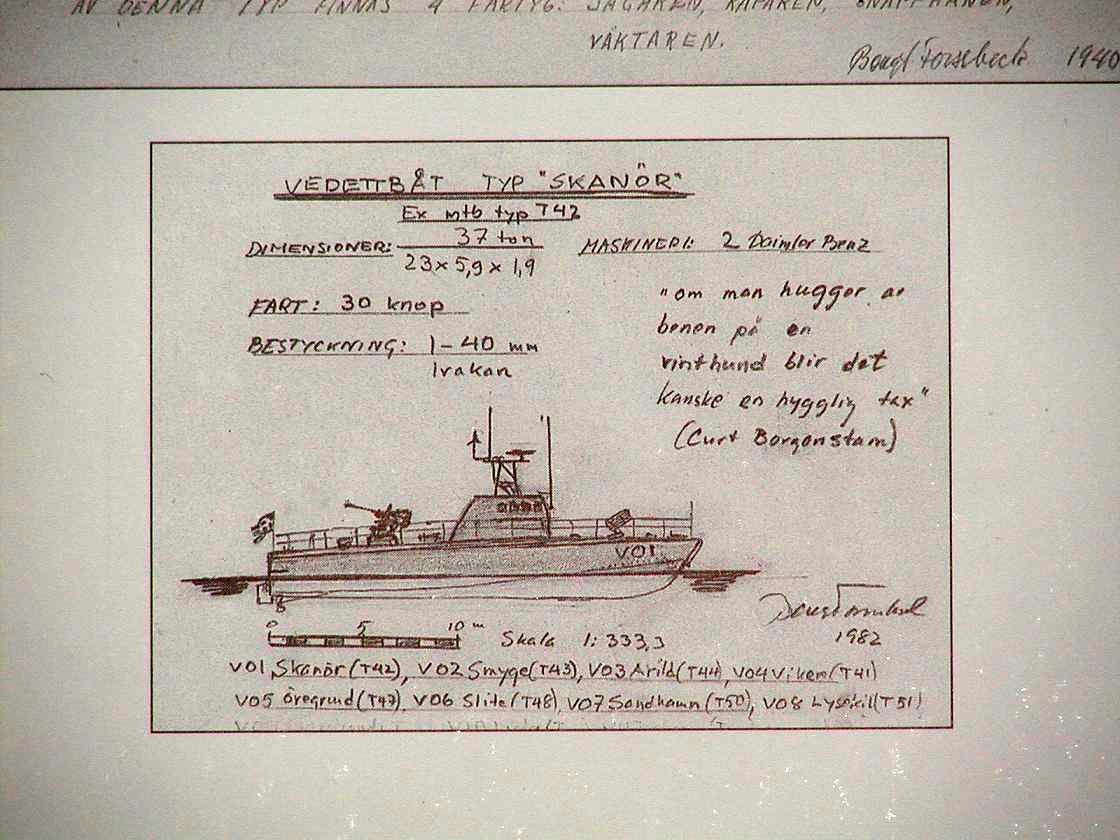 AV DENNA TYP FINNAS 4 FARTYG: JÄGAREN, KAPAREN, SNAPPHANEN,
VÄKTAREN.
Bengt Forssbeck 1940
VEDETTBÅT TYP "SKANÖR"
Ex mtb typ T42
DIMENSIONER: 37 ton
23 x 5,9 x 1,9
MASKINERI: 2 Daimler Benz
FART: 30 knop
BESTYCKNING: 1-40 mm
1rakan
"om man hugger av
benen på en
vinthund blir det
kanske en hygglig tax"
(Curt Borgenstam)
V01
0 5 10 m
Skala 1:333,3
1982
V01 Skanör (T42), V02 Smyge (T43), V03 Arild (T44), V04 Viken (T41)
V05 Öregrund (T47), V06 Slite (T48), V07 Sandhamn (T50), V08 Lysekil (T51)